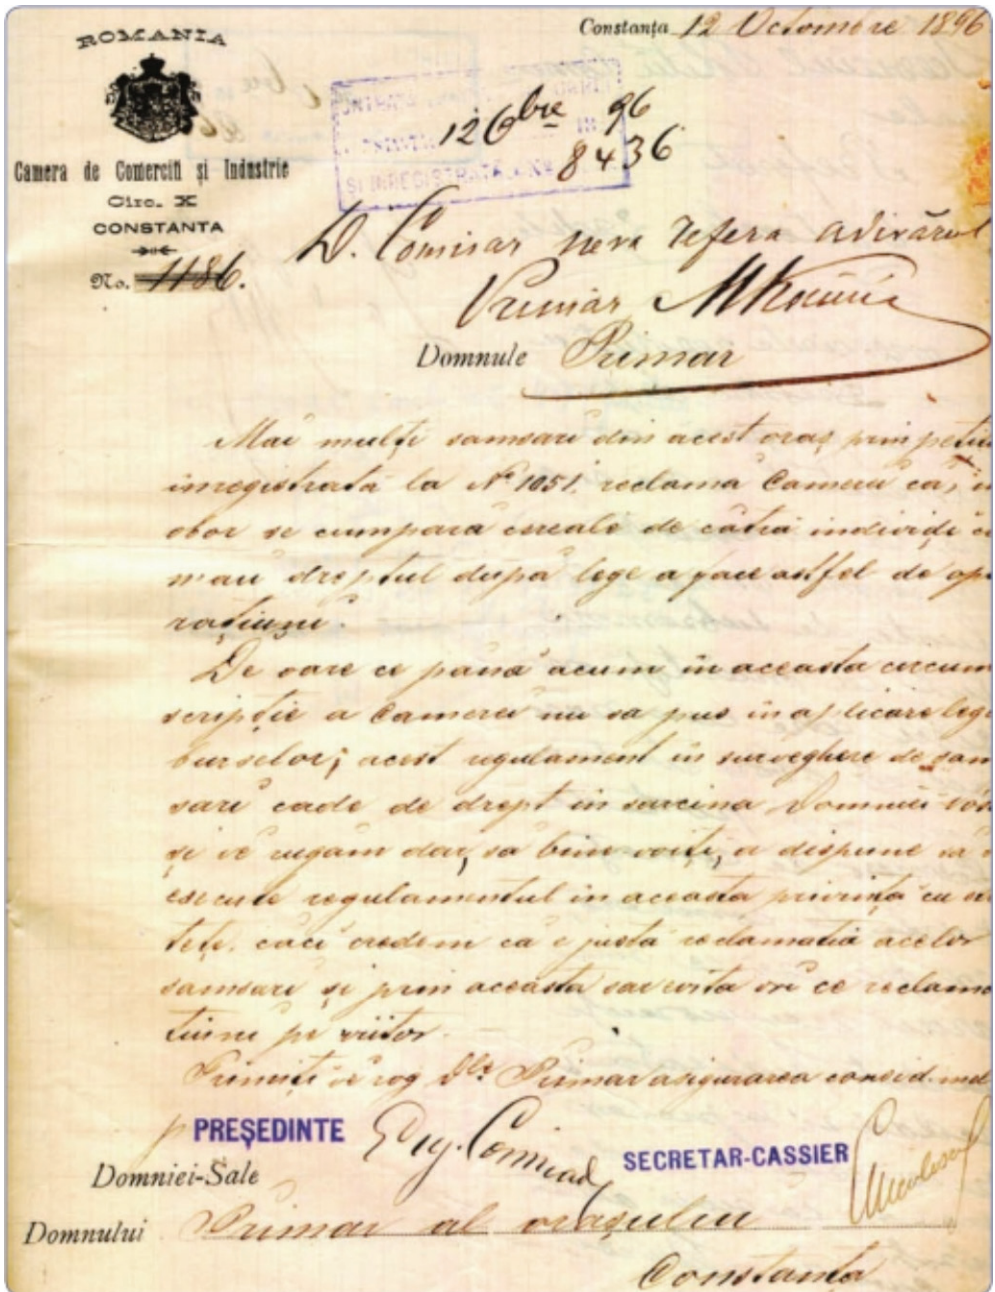 Constanța 12 Octombre 1896
ROMANIA
12 8bre 96
8436
Camera de Comerciŭ și Industrie
Circ. X
CONSTANTA
No. 1186.
D. Comisar refera adivărul
Primar
Domnule Primar
Mai mulți samsari din acest oraș prin
inregistrată la No 1051, reclamă Camerei că, in
obor se cumpară cereale de cătră individi
n'au dreptul după lege a face astfel de ope
rațiuni.
De oare ce până acum în aceasta circum
scripție a Camerei nu sa pus în aplicare
burselor; acest regulament in surveghere de sam
sari cade de drept in sarcina Domniei
și vĕ rugăm dar, să bine voiți, a dispune să
esecute regulamentul in aceasta privință cu
căci credem că e justă reclamatia acelor
samsari și prin aceasta sar evita ori ce reclama
tiuni pe viitor.
Primiți vĕ rog Dle Primar asigurarea consid.
p PREȘEDINTE
SECRETAR-CASSIER
Domniei-Sale
Domnului Primar al orașului
Constanța